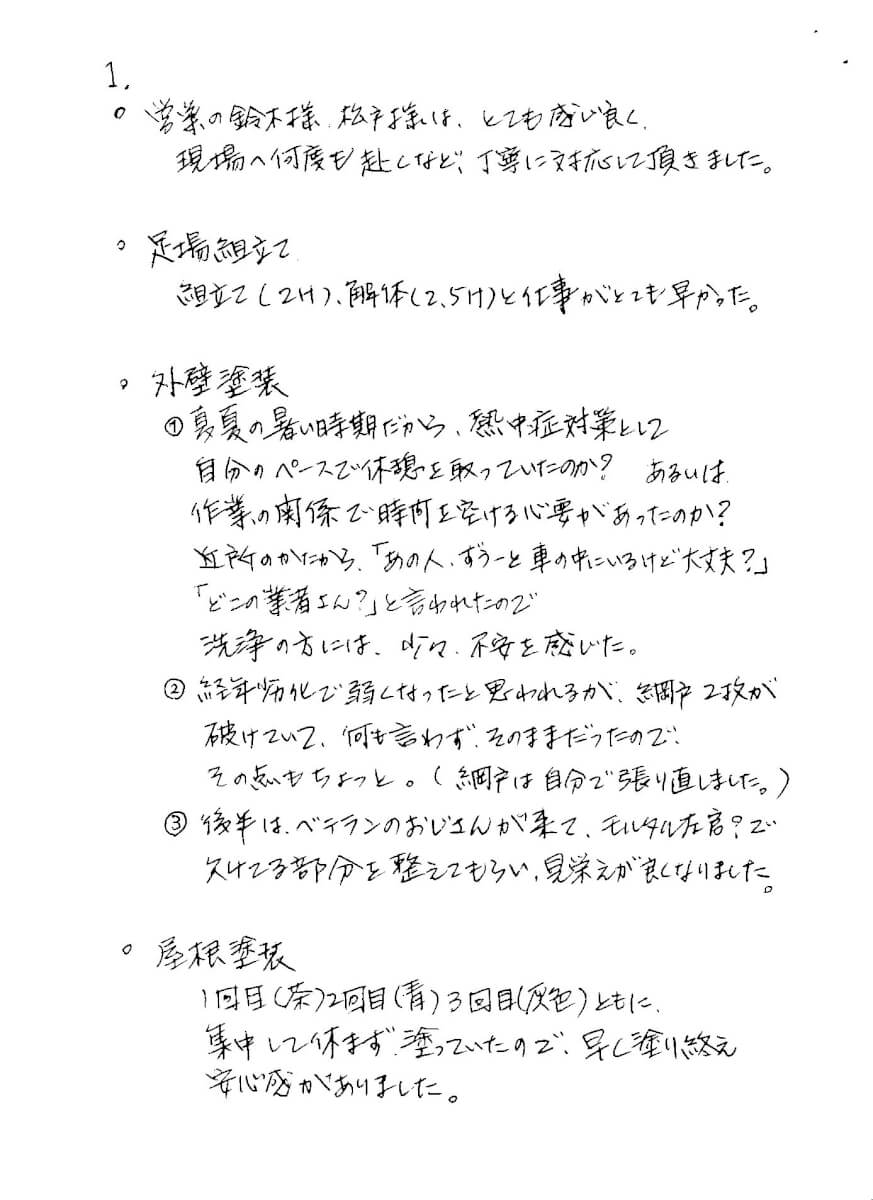 1.
○ 営業の鈴木様、松戸様は、とても感じ良く、
現場へ何度も赴くなど、丁寧に対応して頂きました。
○ 足場組立て
組立て(2H)、解体(2.5H)と仕事がとても早かった。
○ 外壁塗装
① 真夏の暑い時期だから、熱中症対策として
自分のペースで休憩を取っていたのか? あるいは
作業の関係で時間を空ける必要があったのか?
近所のかたから、「あの人、ずぅーと車の中にいるけど大丈夫?」
「どこの業者さん?」と言われたので
洗浄の方には、少々、不安を感じた。
② 経年劣化で弱くなったと思われるが、網戸2枚が
破けていて、何も言わず、そのままだったので、
その点もちょっと。(網戸は自分で張り直しました。)
③ 後半は、ベテランのおじさんが来て、モルタル左官?で
欠けてる部分を整えてもらい、見栄えが良くなりました。
○ 屋根塗装
1回目(茶)2回目(青)3回目(灰色)ともに、
集中して休まず、塗っていたので、早く塗り終え
安心感がありました。